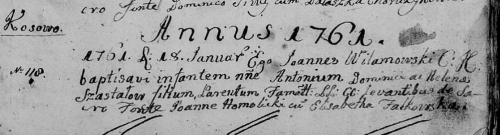 cro Fonte Dominico cum
Kosowo. Annus 1761.
1761 d: 18. Januar: Ego Joannes Wilamowski C. H.
No 118. baptisavi infantem nne Antonium Dominici ac Helena
Szastalow filium, Parentum Famatt: LL: CC: Levantibus de Sa-
cro Fonte Joanne Homolicki cu Elisabetha Falkowska.